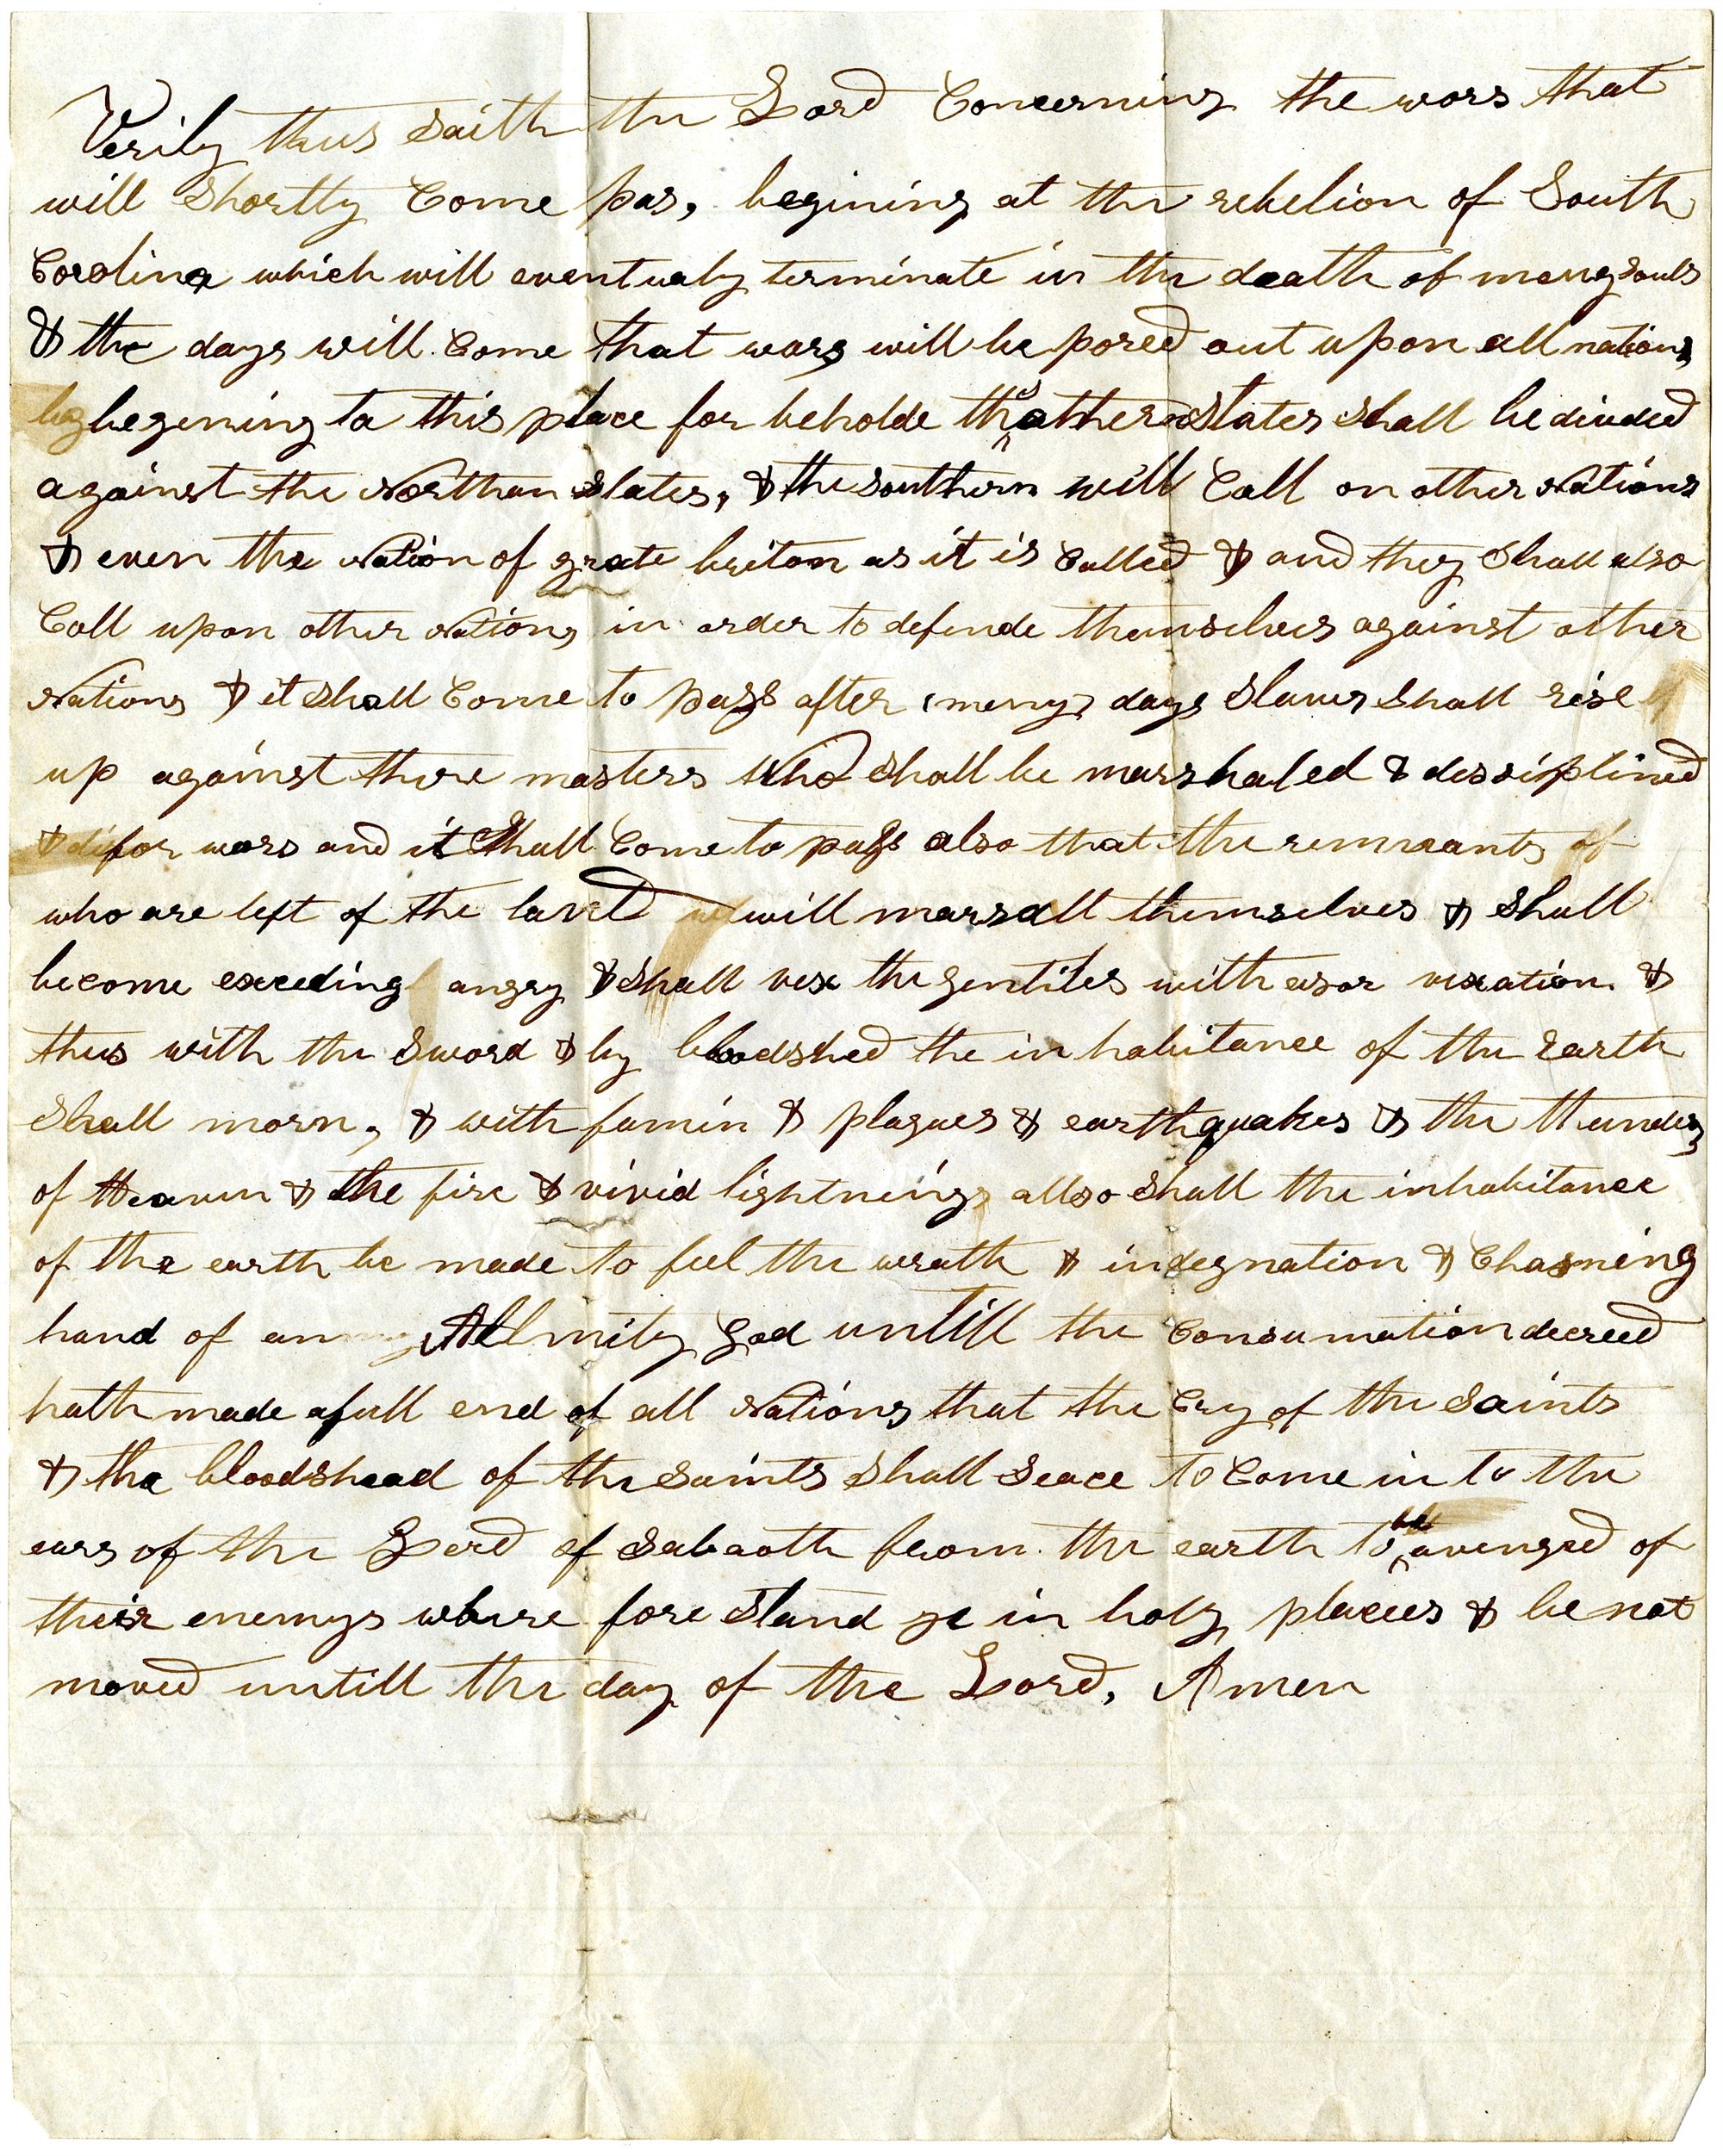 Verily thus saith the Lord Concerning the wars that
will Shortly Come pas, begining at the rebelion of South
Carolina which will eventualy terminate in the death of meny souls
& the days will Come that wars will be pored out upon all nations
begening to this place for beholde the sothern States shall be divided
against the Northan States, & the southern will Call on other Nations
& even the Nation of grate briton as it is Called & and they Shall also
Call upon other Nations in order to defende themselves against other
Nations & it shall Come to pass after meny days Slaves shall rise
up against there masters who shall be marshaled & dissiplined
for wars and it Shall Come to pass also that the remnants of
who are left of the land will marsall themselves & shall
become exceding angry & shall vex the gentiles with a sor vexation &
thus with the Sword & by bloodshed the inhabitance of the Earth
Shall morn, & with famin & plagues & earthquakes & the thunders
of Heaven & the fire & vivid lightnings allso shall the inhabitance
of the earth be made to feel the wrath & indegnation & Chasning
hand of an Allmity God untill the Consumation decreed
hath made a full end of all Nations that the Cry of the Saints
& the bloodshead of the saints shall seace to Come in to the
ears of the Lord of Sabaoth from the earth to be avenged of
their enemys where fore Stand ye in holy places & be not
moved untill the day of the Lord, Amen